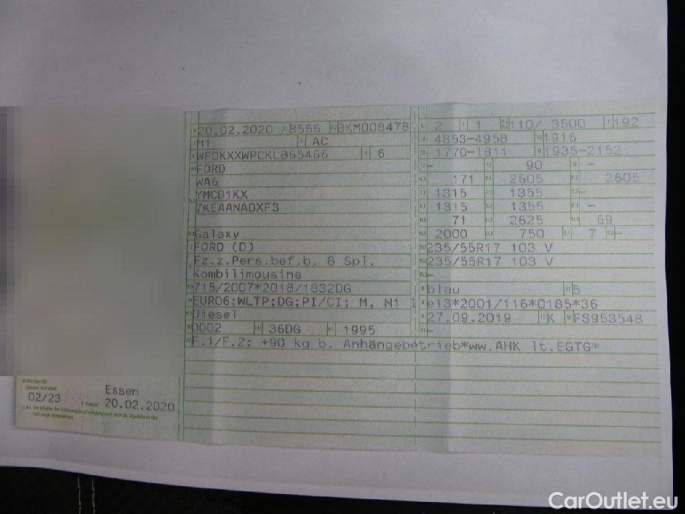 20.02.2020 8566 BKM008478
M1 AC
WF0KXXWPCKL 6
FORD
WA6
YMCB1KX
7KEAANADXF3
Galaxy
FORD (D)
Fz.z.Pers.bef.b. 8 Spl.
Kombilimousine
715/2007*2018/1832DG
EURO6;WLTP;DG;PI/CI; M, N1 I
Diesel
0002 36DG 1995
F.1/F.2: +90 kg b. Anhängebetrieb*ww.AHK lt.EGTG*
2 1 110/ 3500 192
4853-4958 1916
1770-1811 1935-2152
- 90 -
171 2605 2605
1315 1355 -
1315 1355 -
71 2625 69
2000 750 7 -
235/55R17 103 V
235/55R17 103 V
-
blau 5
e13*2001/116*0185*36
27.09.2019 K FS953548
-
Essen
02/23
20.02.2020
CarOutlet.eu